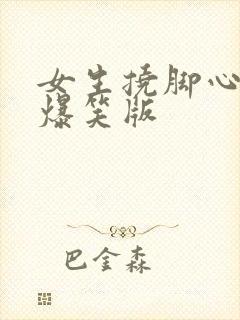 女生挠脚心
爆笑版
巴金森